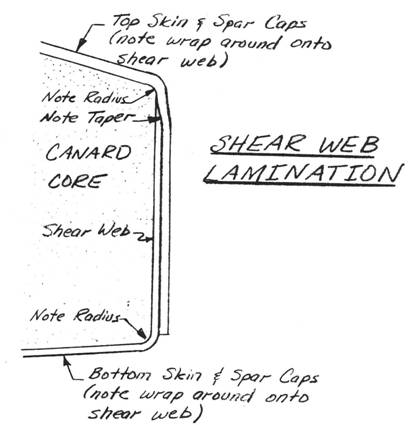 Top Skin & Spar Caps
(note wrap around onto
shear web)
Note Radius
Note Taper
SHEAR WEB
LAMINATION
CANARD
CORE
Shear Web
Note Radius
Bottom Skin & Spar Caps
(note wrap around onto
shear web)